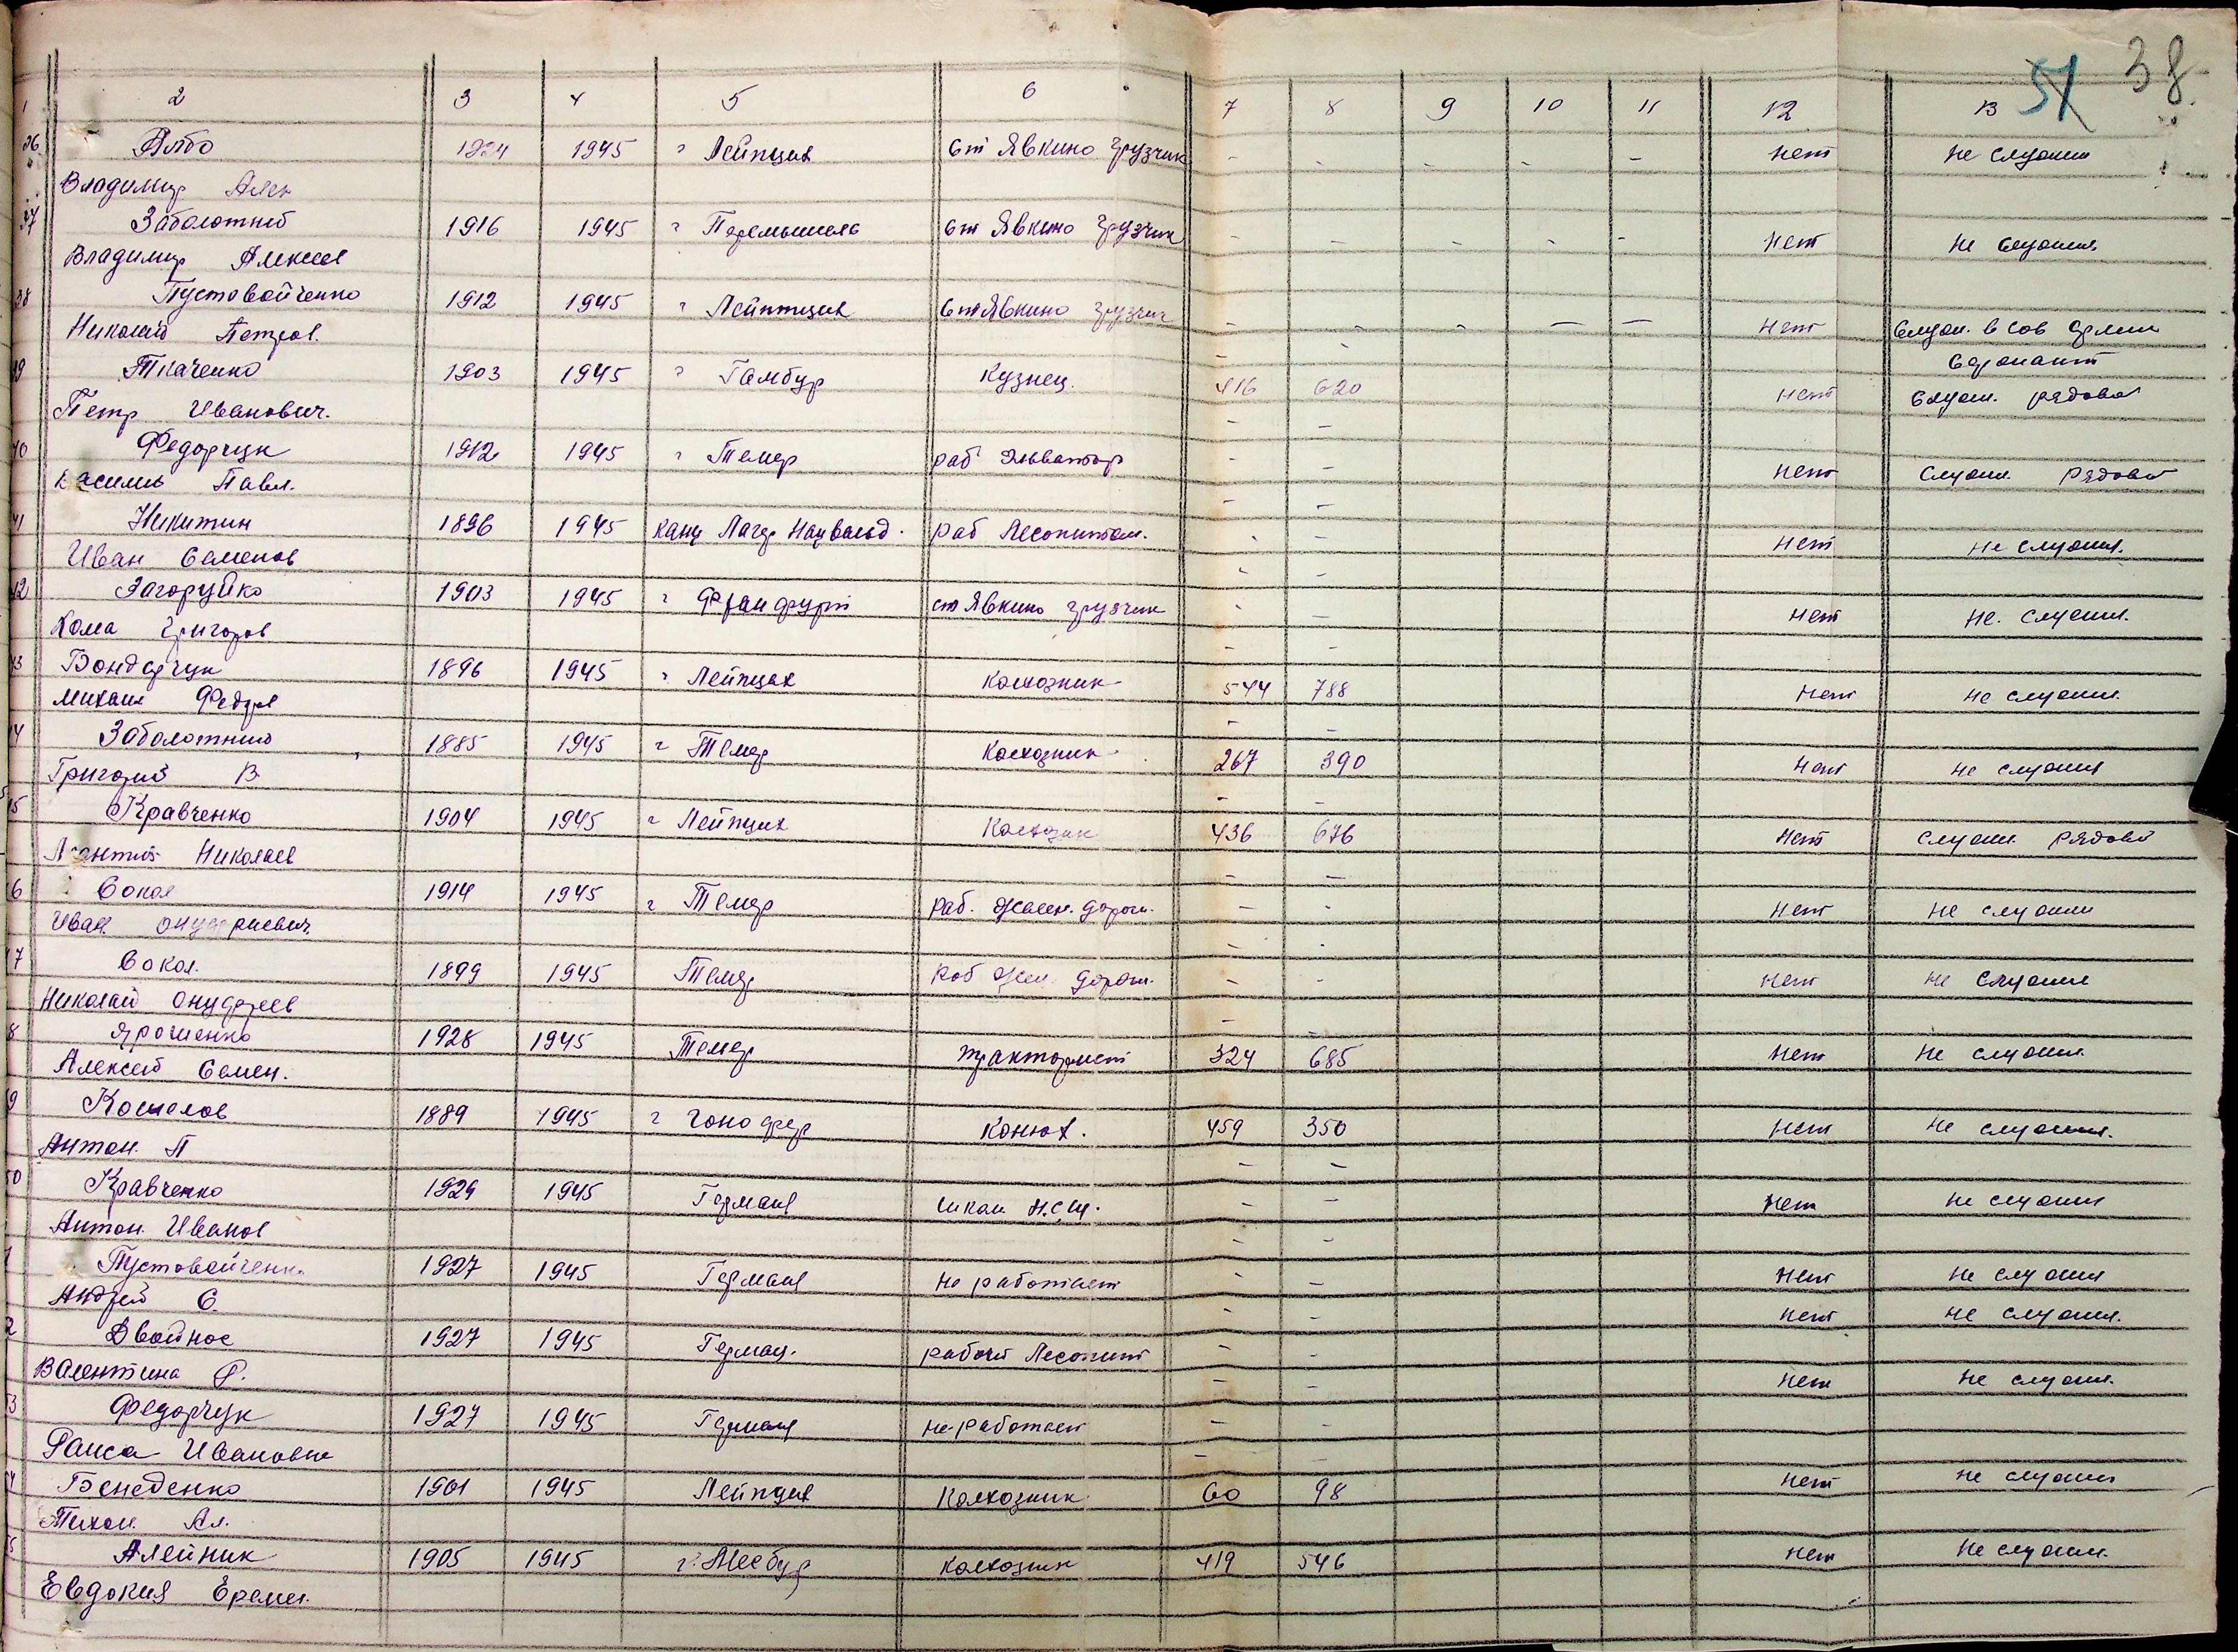 38
51
1 2 3 4 5 6 7 8 9 10 11 12 13
36 Албо 1924 1945 г Лейпциг ст Явкино грузчик - - - - - нет не служил
Владимир Алек
37 Заболотний 1916 1945 г Перемышель ст Явкино грузчик - - - - - нет не служил
Владимир Алексее
38 Пустовойченко 1912 1945 г Лейпциг ст Явкино грузчик - - - - - нет служ. в сов армии
Николай Петров. сержант
39 Ткаченко 1903 1945 г Гамбур кузнец. 416 620 нет служ. рядовой
Петр Иванович. - -
40 Федорчук 1912 1945 г Темер раб Элеватор - - нет служил рядовой
Василий Павл. - -
41 Никитин 1896 1945 конц Лагер раб Лесопитом. - - нет не служил.
Иван Семенов - -
42 Загоруйко 1903 1945 г Франфурт ст Явкино грузчик - - нет не служил.
Хома Григоров - -
43 Бондарчук 1896 1945 г Лейпциг колхозник 544 788 нет не служил.
Михаил Федор - -
44 Заболотний 1885 1945 г Темер колхозник 267 390 нет не служил
Григорий В. - -
45 Кравченко 1904 1945 г Лейпциг колхозник 436 676 нет служил рядовой
Леантий Николаев - -
46 Сокол 1914 1945 г Темер раб. желез. дорог. - - нет не служил
Иван Онуфриевич - -
47 Сокол. 1899 1945 Темер раб жел. дорог. - - нет не служил
Николай Онуфреев - -
48 Ярошенко 1928 1945 Темер тракторист 324 685 нет не служил.
Алексей Семен.
49 Кошелов 1889 1945 г конюх. 459 350 нет не служил.
Антон. П - -
50 Кравченко 1929 1945 Германия школ Н.С.Ш. - - нет не служил
Антон Иванов - -
51 Пустовойченк. 1927 1945 Германия не работает - - нет не служил
Андрей С. - - нет не служил.
52 Двойнос 1927 1945 Герман. рабочий Лесопит - -
Валентина Р. - - нет не служил.
53 Федорчук 1927 1945 Германия не работает - -
Раиса Ивановна -
54 Бенеденко 1901 1945 Лейпциг колхозник 60 98 нет не служил
Тихон. Ал.
55 Алейник 1905 1945 г. колхозник 419 546 нет не служил.
Евдокия Ереми.